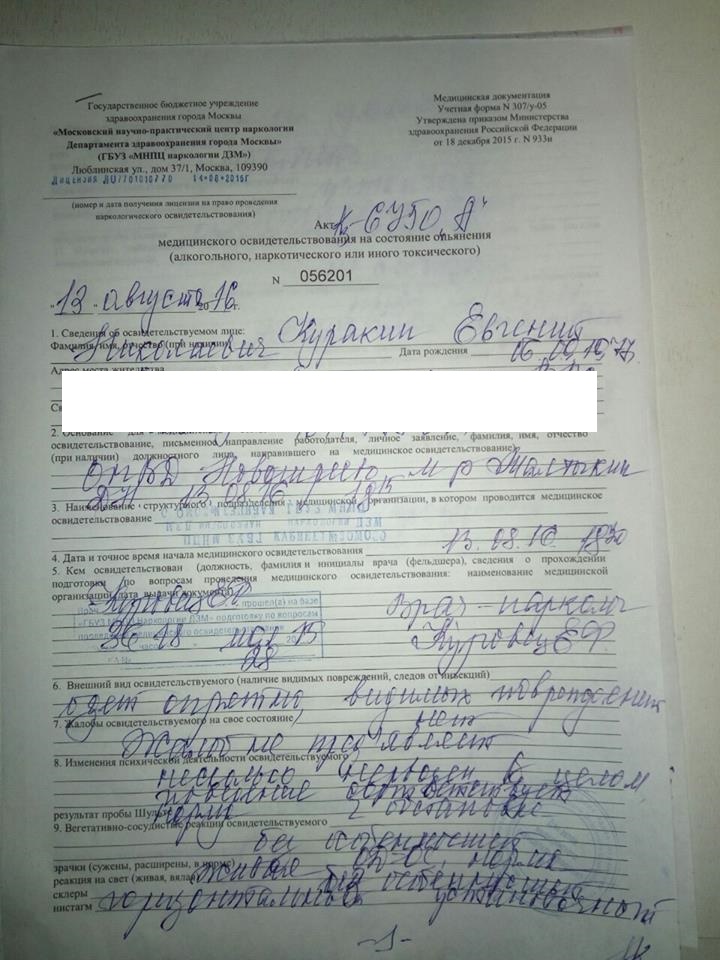 Государственное бюджетное учреждение
здравоохранения города Москвы
«Московский научно-практический центр наркологии
Департамента здравоохранения города Москвы»
(ГБУЗ «МНПЦ наркологии ДЗМ»)
Люблинская ул., дом 37/1, Москва, 109390
Лицензия ЛО7701010770 14*08*2015г
(номер и дата получения лицензии на право проведения
наркологического освидетельствования)
Медицинская документация
Учетная форма N 307/у-05
Утверждена приказом Министерства
здравоохранения Российской Федерации
от 18 декабря 2015 г. N 933н
Акт
медицинского освидетельствования на состояние опьянения
(алкогольного, наркотического или иного токсического)
N 056201
"13" августа 2016 г.
1. Сведения об освидетельствуемом лице:
Фамилия, имя, отчество (при наличии) Куракин Евгений
Николаевич Дата рождения
Адрес места жительства
2. Основание для
освидетельствование, письменное направление работодателя, личное заявление, фамилия, имя, отчество
(при наличии) должностного лица, направившего на медицинское освидетельствование)
13.08.16
3. Наименование структурного подразделения медицинской организации, в котором проводится медицинское
освидетельствование
4. Дата и точное время начала медицинского освидетельствования 13.08.16 18 30
5. Кем освидетельствован (должность, фамилия и инициалы врача (фельдшера), сведения о прохождении
подготовки по вопросам проведения медицинского освидетельствования: наименование медицинской
организации, дата выдачи документа)
прошел(а) на базе
«ГБУЗ МНПЦ наркологии ДЗМ» подготовку по вопросам
проведения медицинского освидетельствования
Врач-нарколог
6. Внешний вид освидетельствуемого (наличие видимых повреждений, следов от инъекций)
одет опрятно видимых повреждений
7. Жалобы освидетельствуемого на свое состояние нет
Жалоб не предъявляет
8. Изменения психической деятельности освидетельствуемого
несколько нервозен в целом
поведение соответствует
результат пробы Шульте обстановке
9. Вегетативно-сосудистые реакции освидетельствуемого
без особенностей
зрачки (сужены, расширены, в норме) норма
реакция на свет (живая, вялая) живая
склеры без особенностей
нистагм горизонтальный установочный
-1-